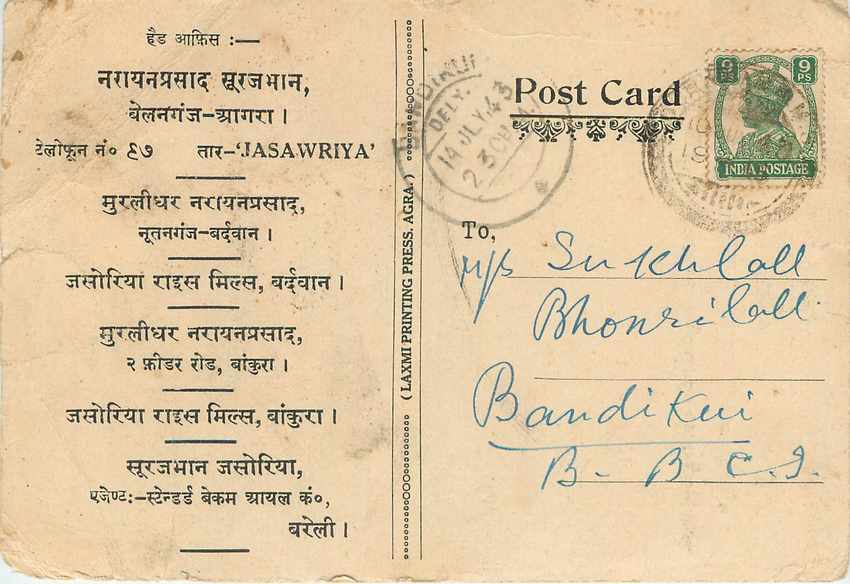 हैड आफ़िस :—
नरायनप्रसाद सूरजभान,
बेलनगंज-आगरा।
टेलोफून नं० ९७ तार-'JASAWRIYA'
मुरलीधर नरायनप्रसाद,
नूतनगंज-बर्दवान।
जसोरिया राइस मिल्स, बर्दवान।
मुरलीधर नरायनप्रसाद,
२ फ़ीडर रोड, बांकुरा।
जसोरिया राइस मिल्स, बांकुरा।
सूरजभान जसोरिया,
एजेण्ट:-स्टेन्डर्ड बेकम आयल कं०,
बरेली।
(LAXMI PRINTING PRESS, AGRA.)
DELY.
14 JLY. 43
Post Card
9 PS 9 PS
INDIA POSTAGE
To,
M/s Sukhlall
Bhonrilall
Bandikui
B. B C. I.